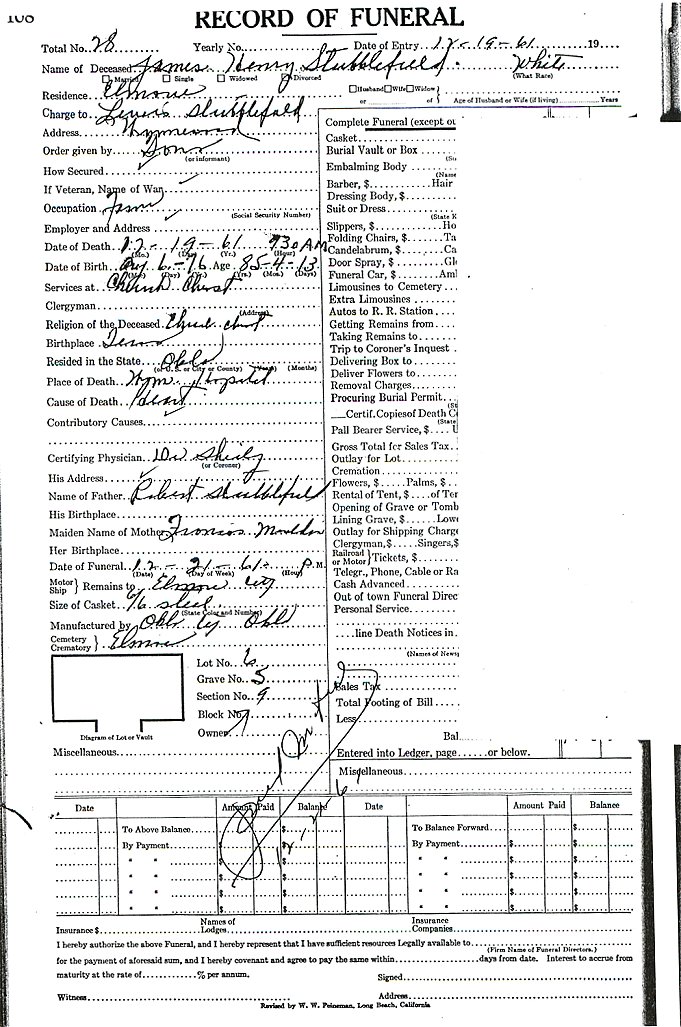 108
RECORD OF FUNERAL
Total No. 28 Yearly No. Date of Entry 12-19-61 19
Name of Deceased James Henry Stubblefield. White
Married Single Widowed Divorced (What Race)
Residence Elmore Husband Wife Widow
or of Age of Husband or Wife (if living) Years
Charge to Lewis Stubblefield
Address Wynnewood
Order given by Sons
(or informant)
How Secured
If Veteran, Name of War
Occupation Farm
(Social Security Number)
Employer and Address
Date of Death 12-19-61 730 AM
(Mo.) (Day) (Yr.) (Hour)
Date of Birth Aug 6-76 Age 85-4-13
(Mo.) (Day) (Yr.) (Yrs.) (Mos.) (Days)
Services at Church Christ
Clergyman
(Address)
Religion of the Deceased Church Christ
Birthplace Tenn
Resided in the State Okla
(or U. S. or City or County) (Years) (Months)
Place of Death Wynn. Hospital
Cause of Death Heart
Contributory Causes
Certifying Physician Dr
(or Coroner)
His Address
Name of Father Robert Stubblefield
His Birthplace
Maiden Name of Mother Mauldon
Her Birthplace
Date of Funeral 12-21-61- P.M.
(Date) (Day of Week) (Hour)
Motor Ship } Remains to Elmore City
Size of Casket 76 steel
(State Color and Number)
Manufactured by Okla Cy Okla
Cemetery Crematory } Elmore
Lot No. 6
Grave No. 5
Section No. 9
Block No. 7
Owner
Diagram of Lot or Vault
Miscellaneous
Complete Funeral (except ou
Casket
Burial Vault or Box
(St
Embalming Body
(Name
Barber, $ Hair
Dressing Body, $
Suit or Dress
(State K
Slippers, $ Ho
Folding Chairs, $ Ta
Candelabrum, $ Ca
Door Spray, $ Gl
Funeral Car, $ Aml
Limousines to Cemetery
Extra Limousines
Autos to R. R. Station
Getting Remains from
Taking Remains to
Trip to Coroner's Inquest
Delivering Box to
Deliver Flowers to
Removal Charges
Procuring Burial Permit
(St
Certif. Copies of Death C
(State
Pall Bearer Service, $ U
Gross Total for Sales Tax
Outlay for Lot
Cremation
Flowers, $ Palms, $
Rental of Tent, $ of Ter
Opening of Grave or Tomb
Lining Grave, $ Lowe
Outlay for Shipping Charge
Clergyman, $ Singers, $
Railroad or Motor } Tickets, $
Telegr., Phone, Cable or Ra
Cash Advanced
Out of town Funeral Direc
Personal Service
line Death Notices in
(Names of News
Sales Tax
Total Footing of Bill
Less
Bal
Entered into Ledger, page or below.
Miscellaneous
Date Amount Paid Balance Date Amount Paid Balance
To Above Balance $ To Balance Forward $
By Payment $ $ By Payment $ $
" " $ $ " " $ $
" " $ $ " " $ $
" " $ $ " " $ $
" " $ $ " " $ $
Insurance $ Names of Lodges Insurance Companies
I hereby authorize the above Funeral, and I hereby represent that I have sufficient resources Legally available to
(Firm Name of Funeral Directors.)
for the payment of aforesaid sum, and I hereby covenant and agree to pay the same within days from date. Interest to accrue from
maturity at the rate of % per annum. Signed
Witness Address
Revised by W. W. Peineman, Long Beach, California